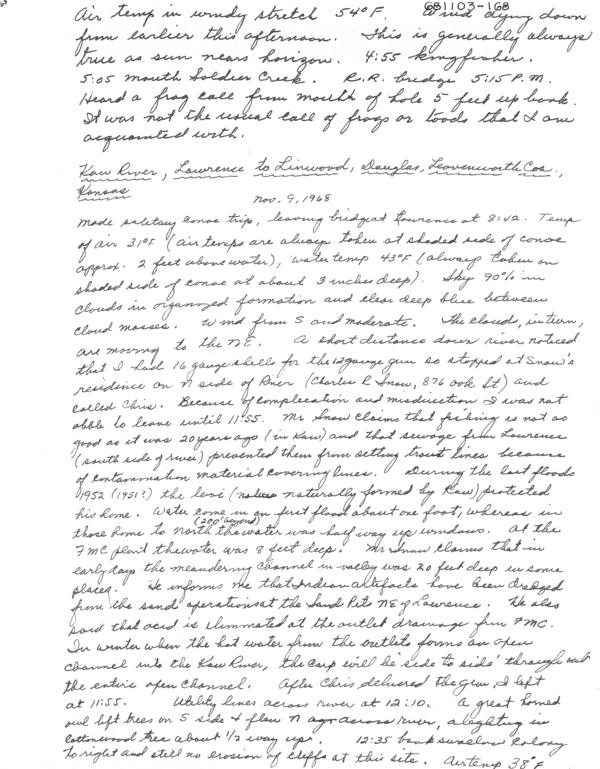 681103-168
Air temp in windy stretch 54°F. Wind dying down
from earlier this afternoon. This is generally always
true as sun nears horizon. 4:55 kingfisher.
5:05 mouth Soldier Creek. R.R. bridge 5:15 P.M.
Heard a frog call from mouth of hole 5 feet up bank.
It was not the usual call of frogs or toads that I am
acquainted with.
Kaw River, Lawrence to Linwood, Douglas, Leavenworth Cos.,
Kansas
Nov. 9, 1968
Made solitary canoe trip, leaving bridge at Lawrence at 8:42. Temp
of air 31°F (air temps are always taken at shaded side of canoe
approx. 2 feet above water), water temp 43°F (always taken on
shaded side of canoe at about 3 inches deep). Sky 90% in
clouds in organized formation and clear deep blue between
cloud masses. Wind from S and moderate. The clouds, in turn,
are moving to the NE. A short distance down river noticed
that I had 16 gauge shells for the 12 gauge gun so stopped at Snow's
residence on N side of River (Charles R Snow, 876 oak St) and
called Chris. Because of complication and misdirection I was not
able to leave until 11:55. Mr Snow claims that fishing is not as
good as it was 20 years ago (in Kaw) and that sewage from Lawrence
(south side of river) prevented them from setting trout lines because
of contamination material covering lines. During the last floods
1952 (1951?) the levi (naturally formed by Kaw) protected
his home. Water come in on first flood about one foot, whereas in
those home to north (200' beyond) the water was half way up windows. At the
FMC plant the water was 8 feet deep. Mr Snow claims that in
early days the meandering channel in valley was 20 feet deep in some
places. He informs me that Indian artifacts have been dredged
from the sand operations at the Sand Pits NE of Lawrence. He also
said that acid is eliminated at the outlet drainage from FMC.
In winter when the hot water from the outlets forms an open
channel into the Kaw River, the carp will be 'side to side' through out
the entire open channel. After Chris delivered the gun, I left
at 11:55. Utility lines across river at 12:10. A great horned
owl left trees on S side & flew N across river, alighting in
cottonwood tree about 1/2 way up. 12:35 bank swallow colony
to right and still no erosion of cliffs at this site. Air temp 38°F